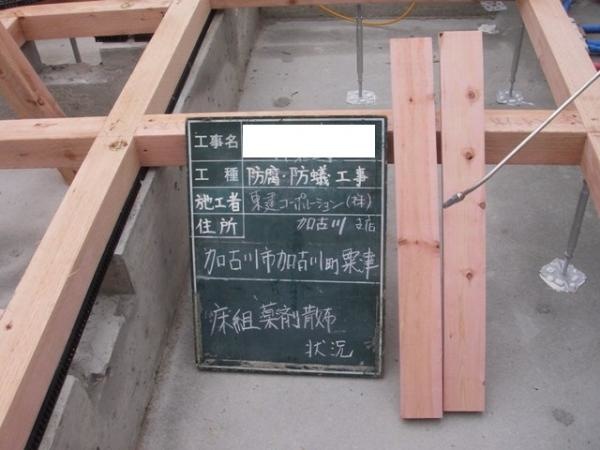 工事名
工種 防腐・防蟻・工事
施工者 東建コーポレーション(株)
住所 加古川支店
加古川市加古川町粟津
床組薬剤散布
状況